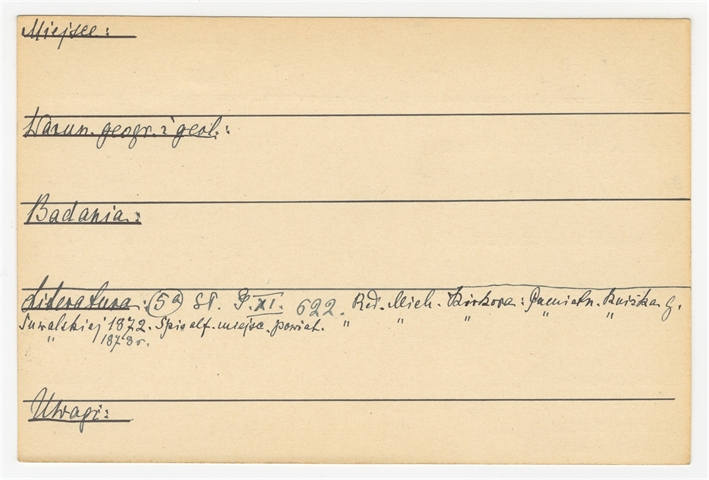 Miejsce:
Warun. geogr. i geol.:
Badania:
Literatura: 5a Sł. G. XI. 622. Red. Mich. Kirkora: Pamiatn. Kniżka g.
Suwalskiej 1872. Spis alf. miejsc. powiat. " " " " "
" 1878 r.
Uwagi: